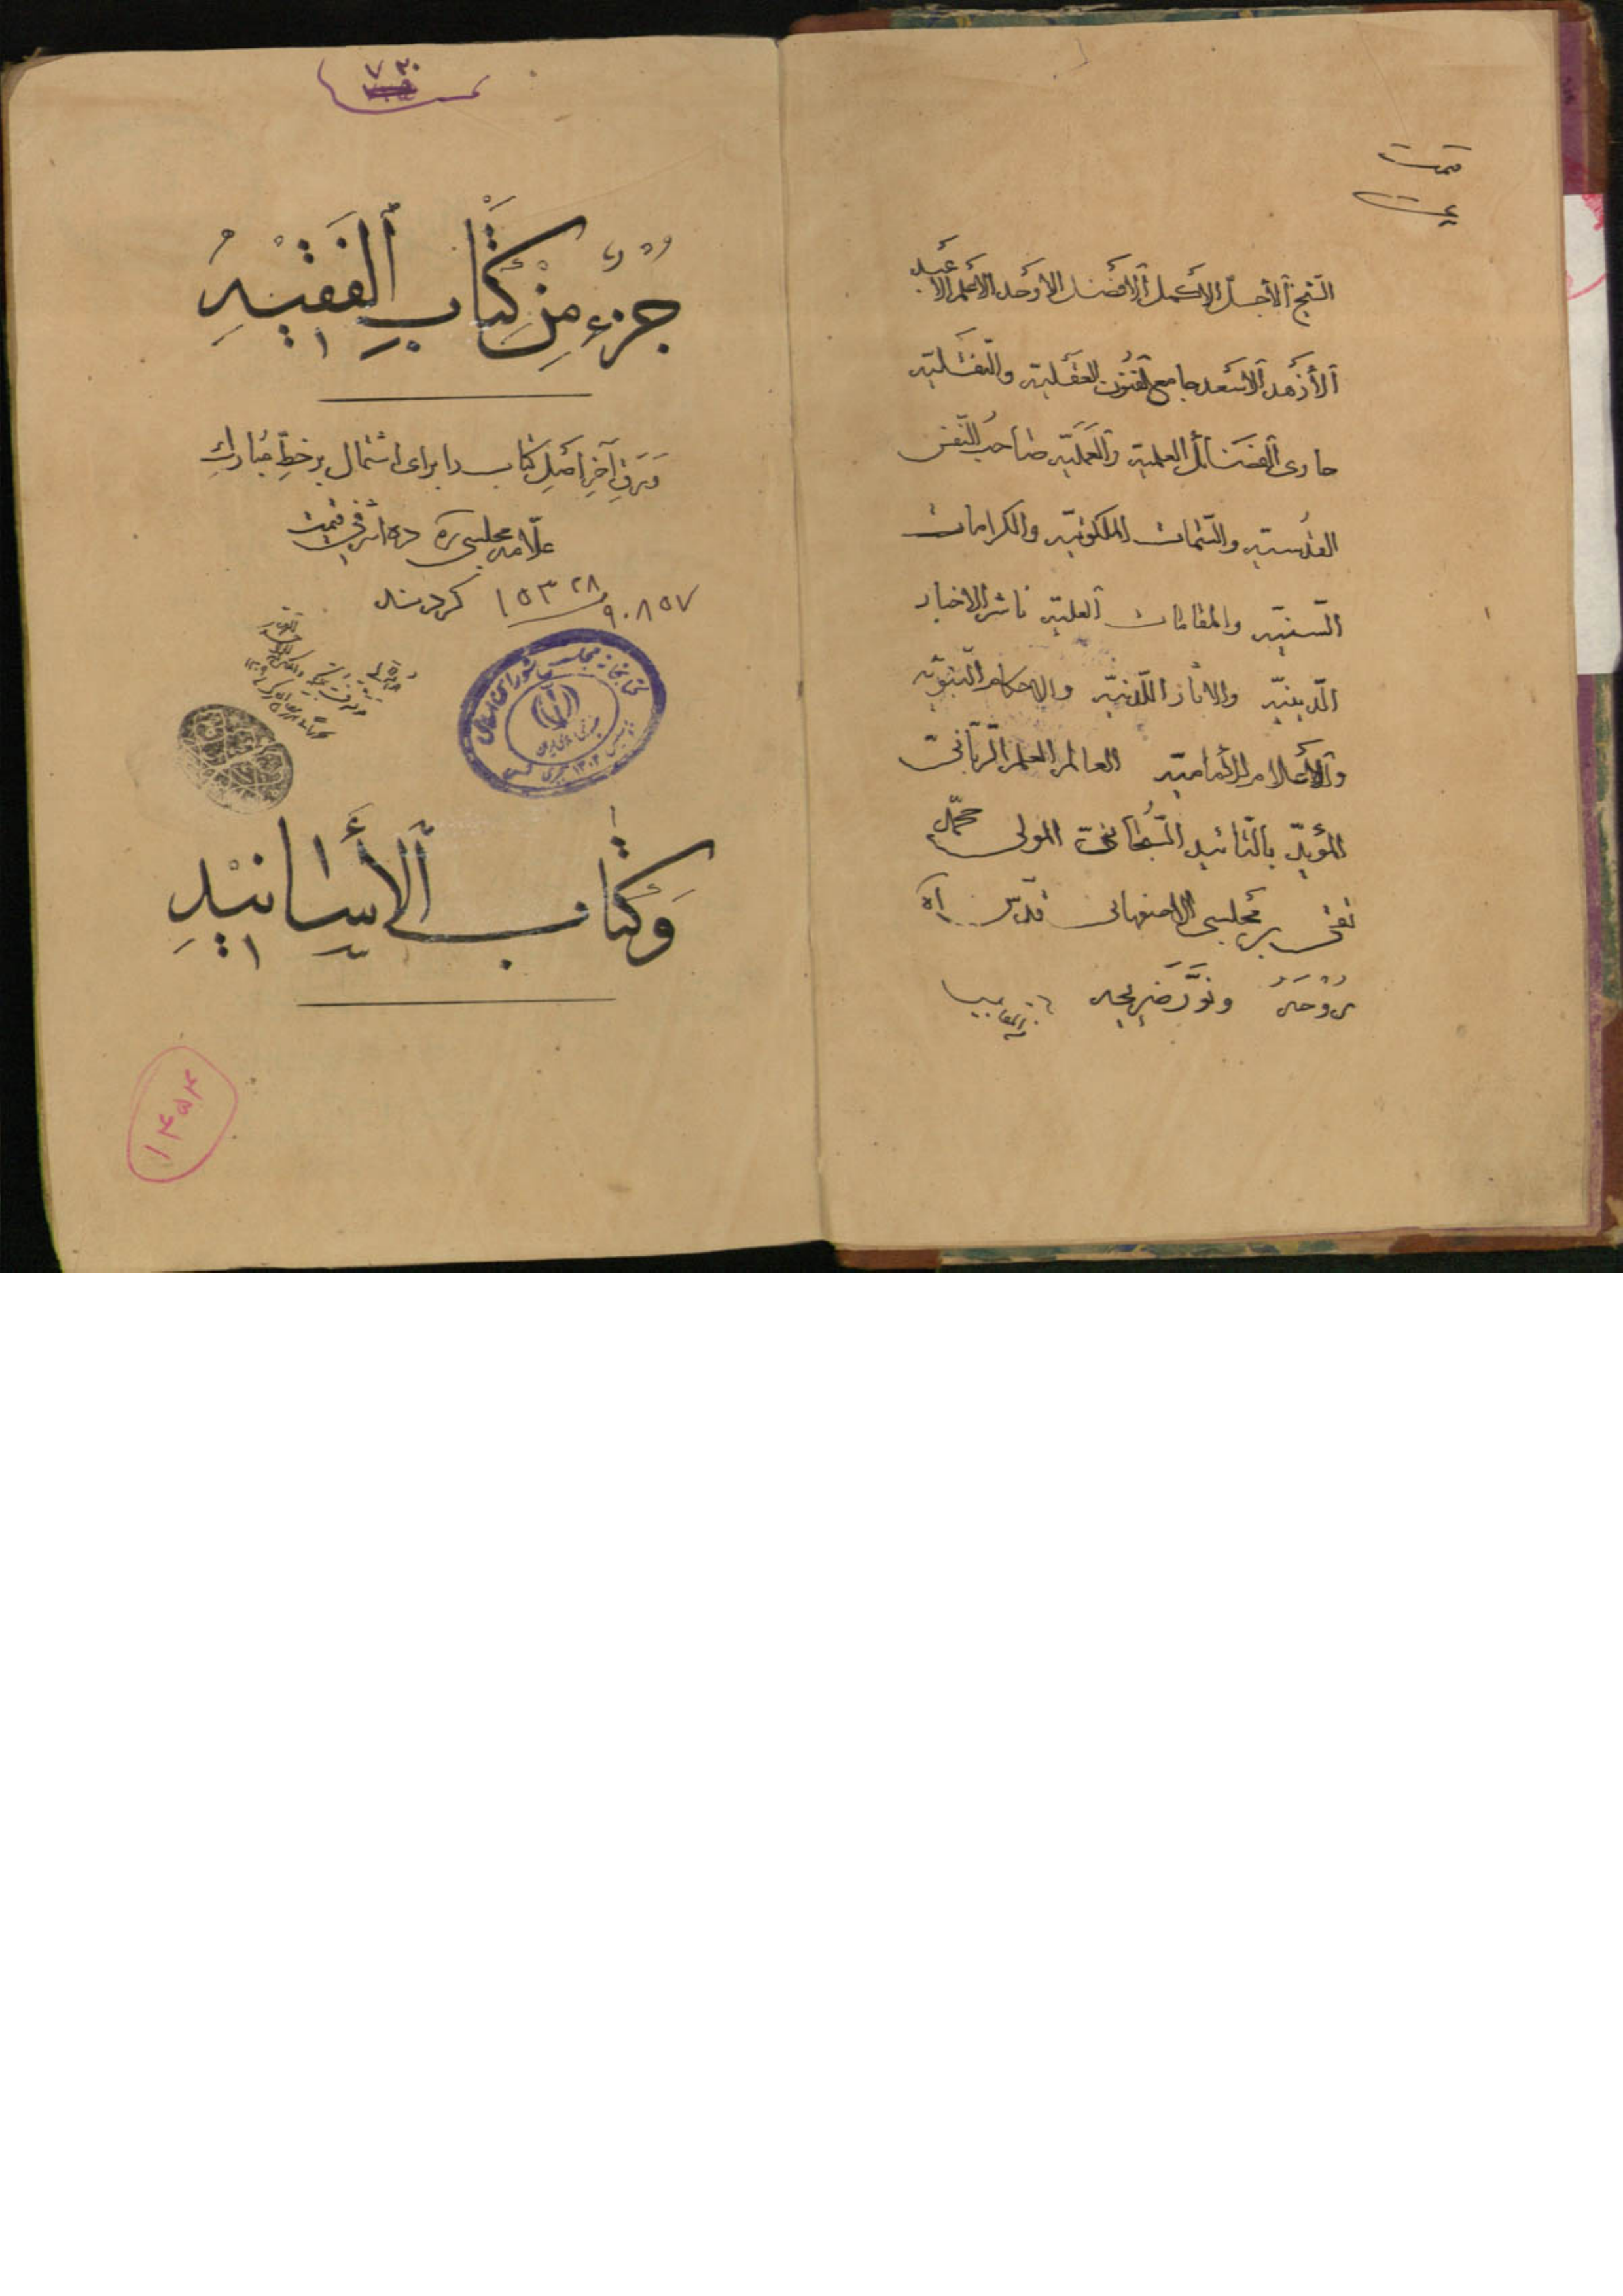 قیمت
الشیخ الأجلّ الأکمل الأفضل الأوحد الأعلم الأعبد
الأزهد الأسعد جامع الفنون العقلیه والنقلیه
حاوی الفضائل العلمیه والعملیّه صاحب النّفس
القدسیّه والسّمات الملکوتیّه والکرامات
السّنیّه والمقامات العلیّه ناشر الاخبار
الدّینیّه والآثار اللّدنیّه والاحکام النّبویّه
والأعلام الأمامیّه العالم العلم الرّبّانیّ
المؤیّد بالتّائید السّبحانیّ المولی محمّد
تقی مجلسی الاصفهانی قدّس اللّه
رُوحَهُ ونوَّرَ ضَریحه
۷۳۰
جُزْءٌ مِنْ کِتَابِ الفَقِیْهِ
وَرَقِ آخِرِ اَصْلِ کتاب را برای اشتمال بر خطِّ مُبارك
علّامه مجلسی ره ده اشرفی قیمت
کردند
۱۵۳۲۸
۹۰۸۵۷
کتابخانه مجلس شورای اسلامی
جمهوری اسلامی ایران
تأسیس ۱۳۰۲ هجری شمسی
وَکِتَاب الأَسَانِیْدِ
۱۴۵۴